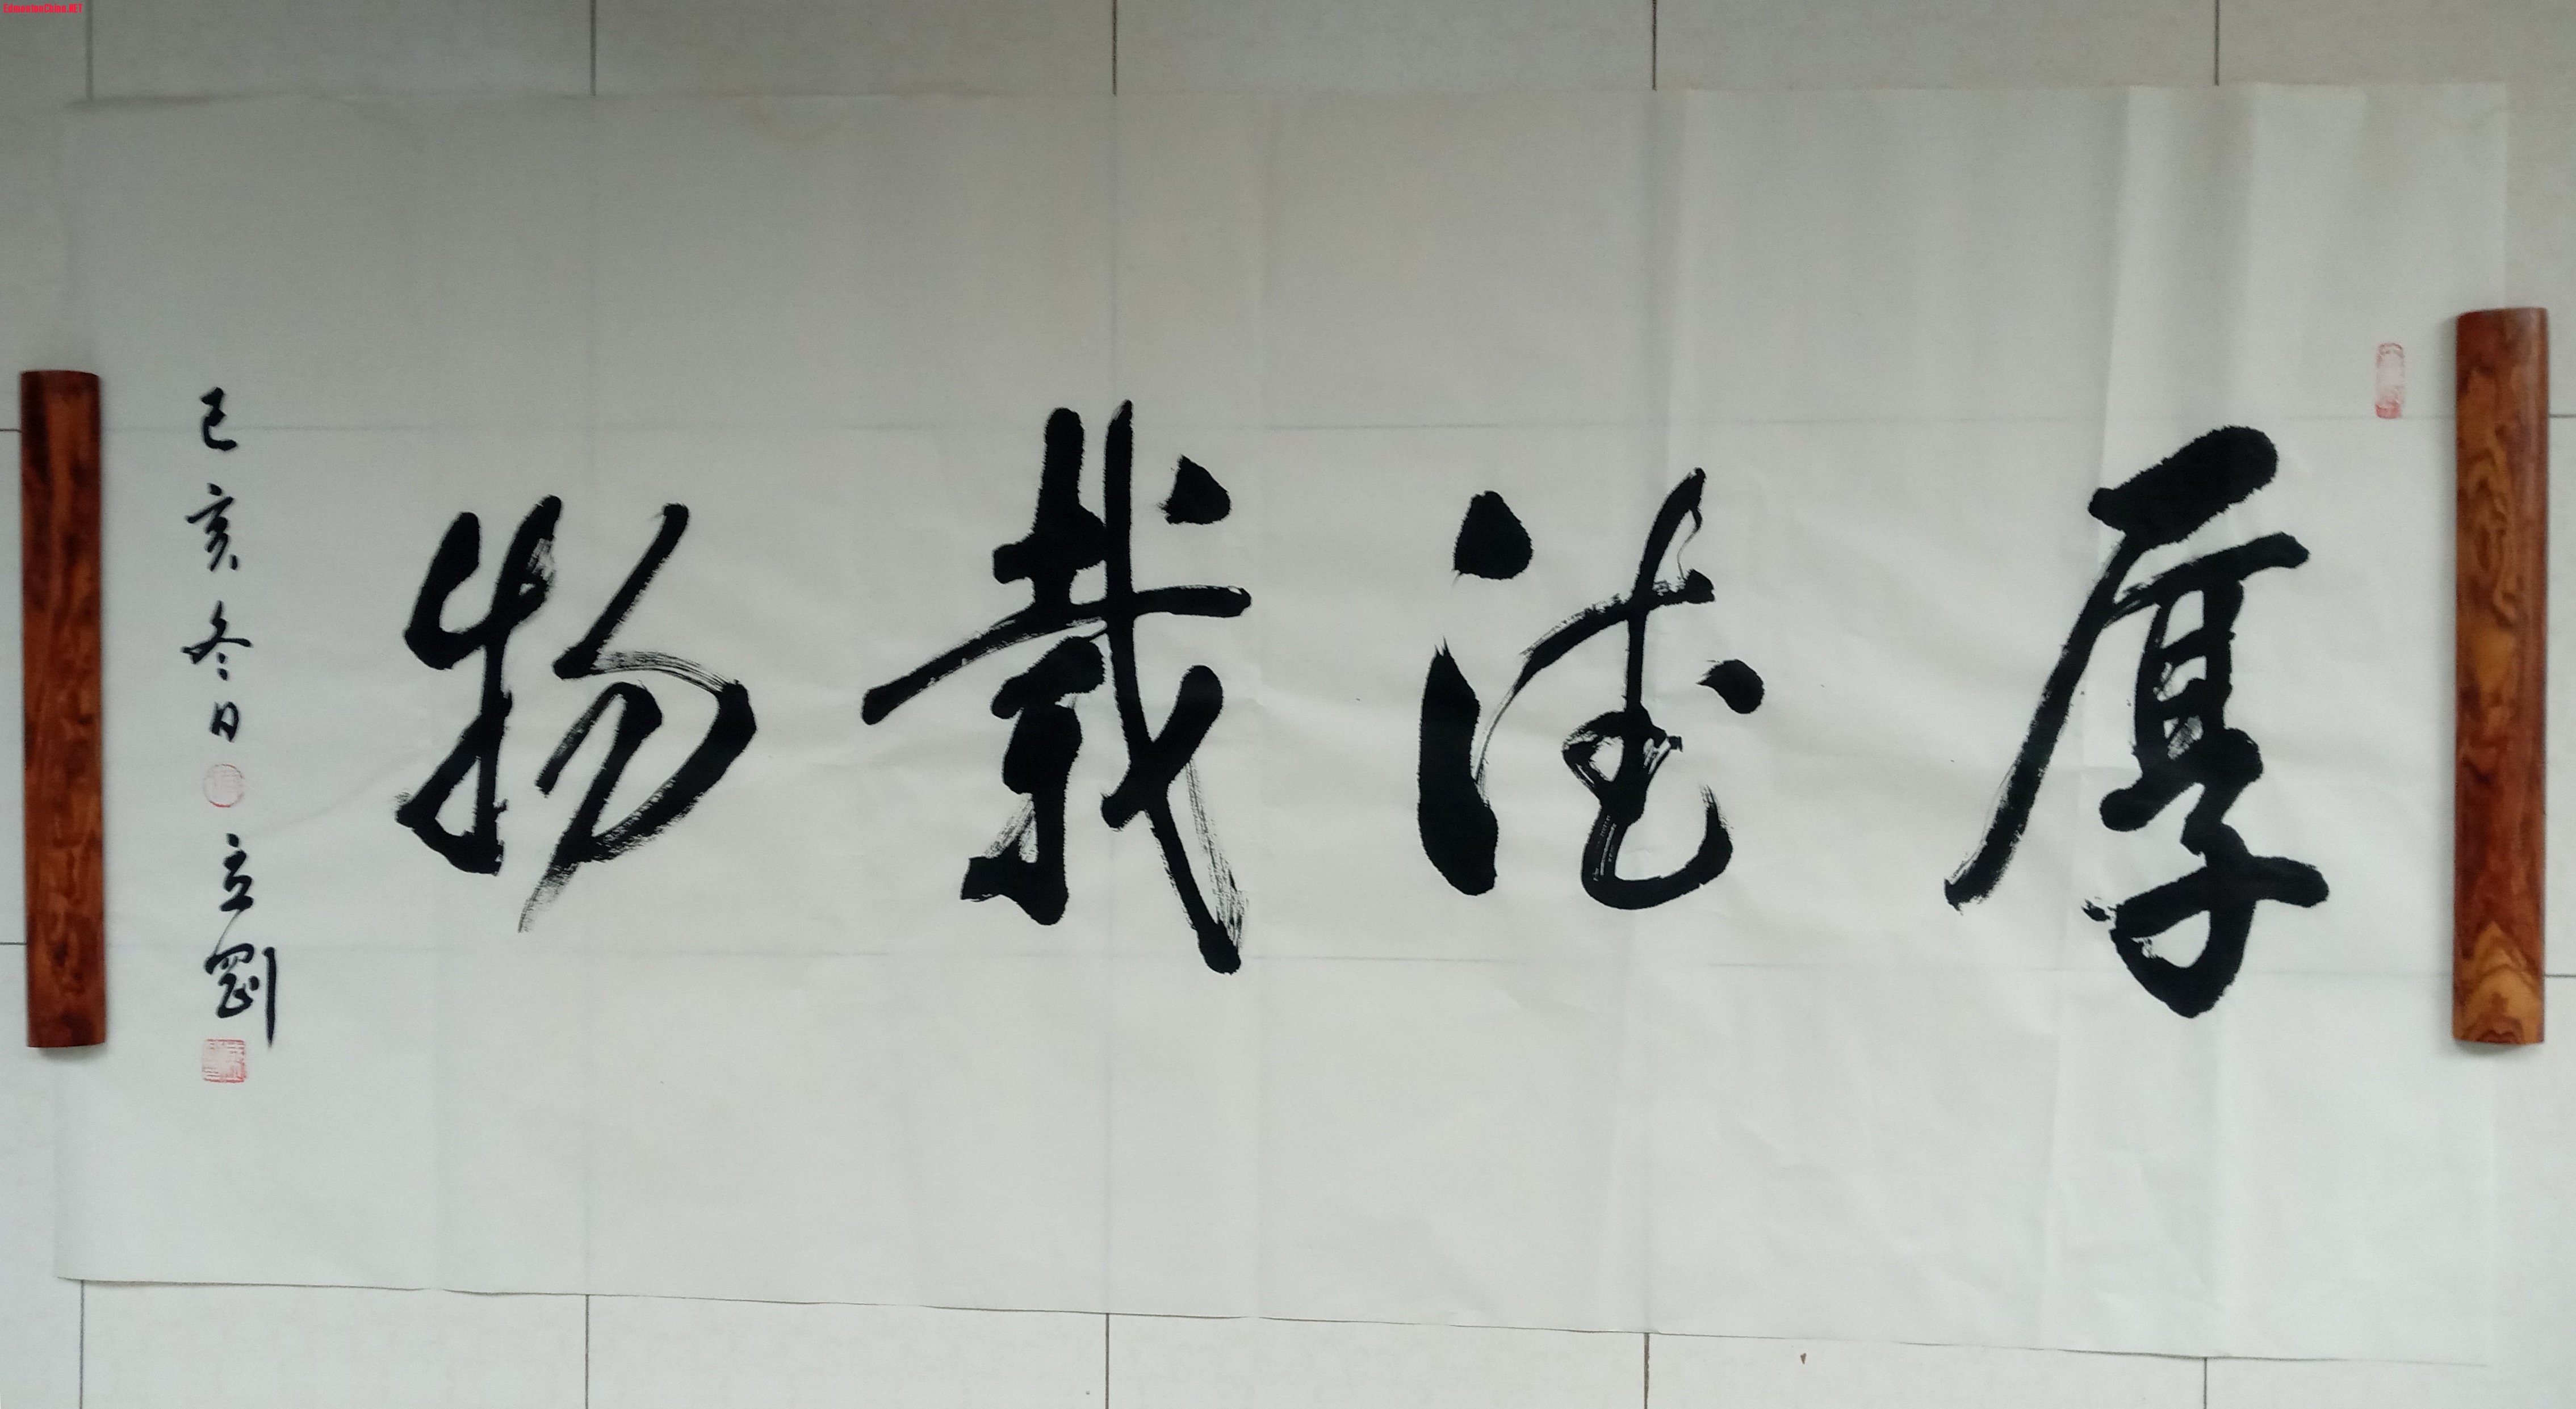 厚德载物
己亥冬日
立刚
EdmontonChina.NET